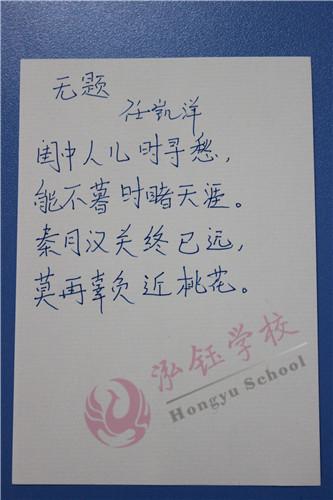 无题
任凯洋
闺中人儿时寻愁，
能不暮时睹天涯。
秦月汉关终已远，
莫再辜负近桃花。
泓钰学校
Hongyu School